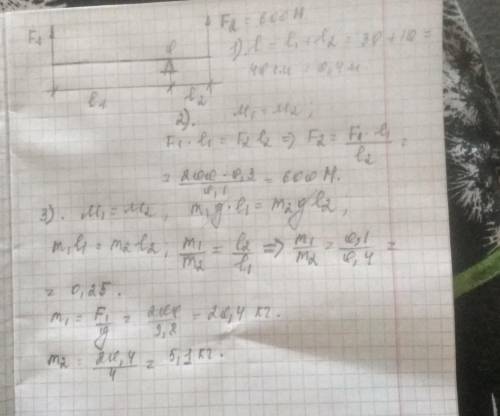 F₁
F₂ = 600 Н
1). l = l₁ + l₂ = 30 + 10 =
40 см = 0,4 м
0
l₁ l₂
2). M₁ = M₂ ;
F₁ · l₁ = F₂ l₂ => F₂ = F₁ · l₁ / l₂ =
= 200 · 0,3 / 0,1 = 600 Н.
3). M₁ = M₂ , m₁ g · l₁ = m₂ g l₂ ,
m₁ l₁ = m₂ l₂ , m₁ / m₂ = l₂ / l₁ => m₁ / m₂ = 0,1 / 0,4 =
= 0,25 .
m₁ = F₁ / g = 200 / 9,8 = 20,4 кг.
m₂ = 20,4 / 4 = 5,1 кг.